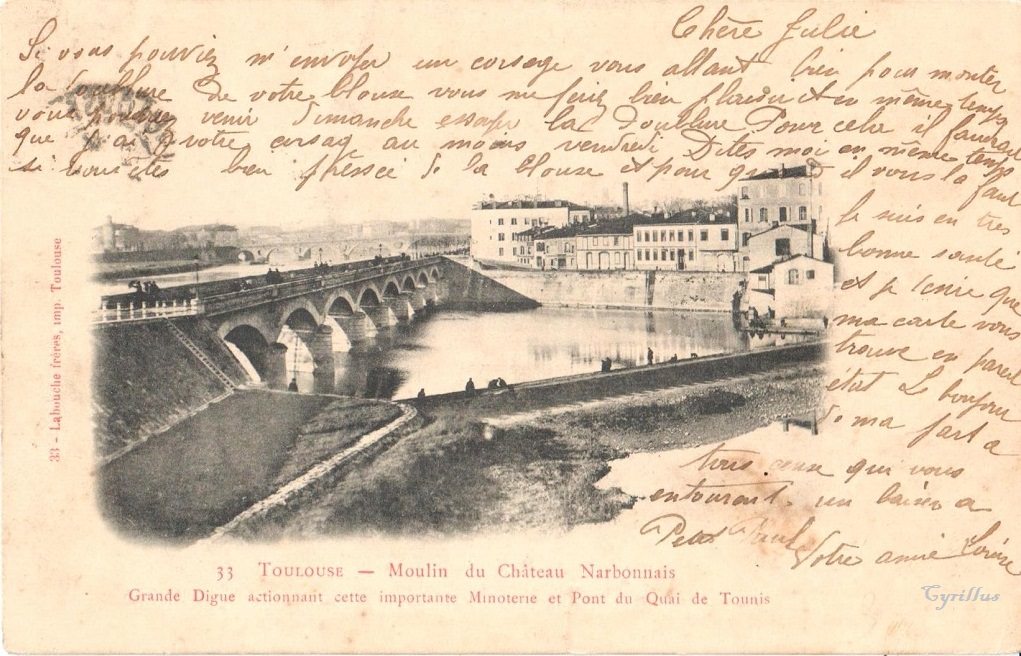 Chère Julie
Si vous pouviez m'envoyer un corsage vous allant bien pour monter
la doublure de votre blouse vous me feriez bien plaisir et en même temps
vous pourriez venir Dimanche essayer la Doublure Pour cela il faudrait
que j'ai votre corsag au moins vendredi Dites moi en même temps
si vous êtes bien préssée de la blouse et pour quand il vous la faut
Je suis en très
bonne santé
et je désire que
ma carte vous
trouve en pareil
état Le bonjour
de ma part a
tous ceux qui vous
entourent. un baiser a
Petit Paul
Votre amie Louise
33 - Labouche frères, imp. Toulouse
33 TOULOUSE — Moulin du Château Narbonnais
Grande Digue actionnant cette importante Minoterie et Pont du Quai de Tounis
Cyrillus